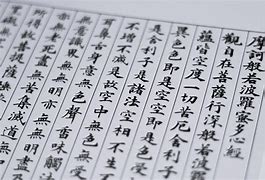 摩訶般若波羅蜜多心經
觀自在菩薩行深般若波羅
蘊皆空度一切苦厄舍利子
異色色即是空空即是色受
是舍利子是諸法空相不生
不增不減是故空中無色
鼻舌身意無色聲香味觸法
界無無明亦無無明盡
亦無老死盡無苦集滅道無
得故菩提薩